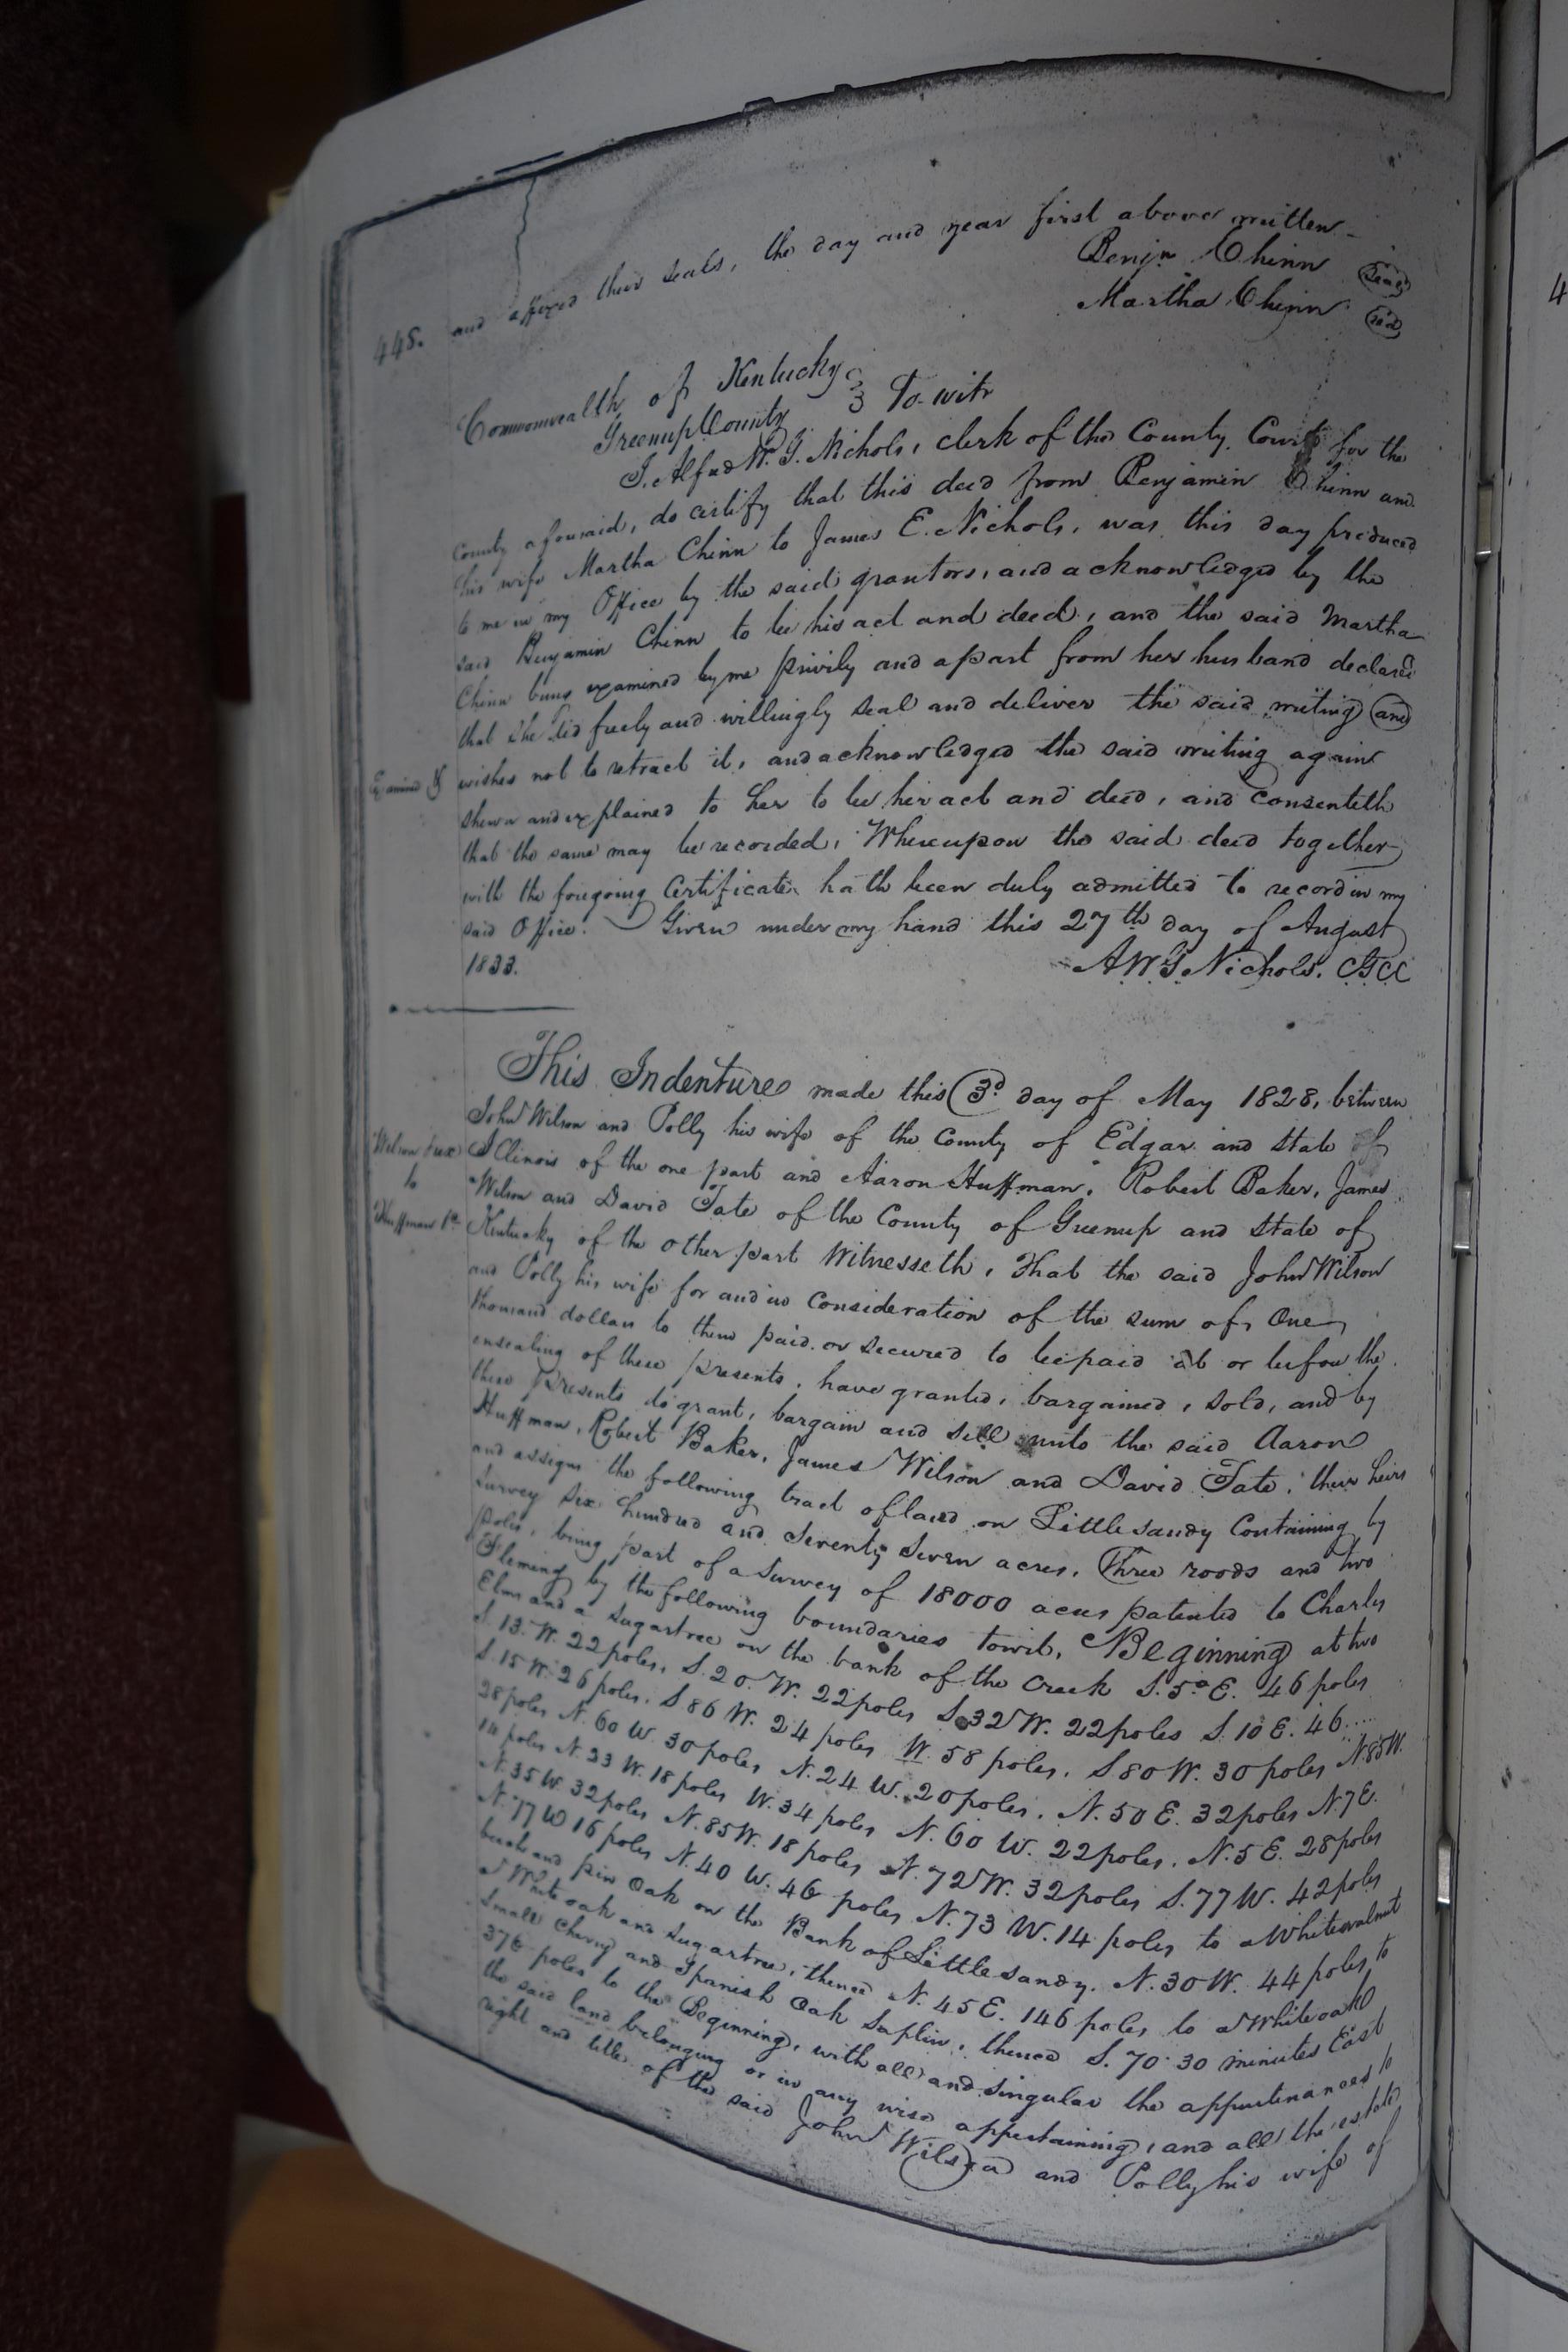 448. and affixed their seals, the day and year first above written
Benjn Chinn Seal
Martha Chinn seal
Commonwealth of Kentucky
Greenup County To wit
I. Alfred W. G. Nichols, clerk of the County Court for the
County aforesaid, do certify that this deed from Benjamin Chinn and
his wife Martha Chinn to James E. Nichols, was this day produced
to me in my Office by the said grantors, and acknowledged by the
said Benjamin Chinn to be his act and deed, and the said Martha
Chinn being examined by me privily and apart from her husband declared
that she did freely and willingly seal and deliver the said writing and
Examined wishes not to retract it, and acknowledged the said writing again
shewn and explained to her to be her act and deed, and consenteth
that the same may be recorded. Whereupon the said deed together
with the foregoing Certificate hath been duly admitted to record in my
said Office. Given under my hand this 27th day of August
1833.
A.W.G. Nichols. C.G.C.C
This Indenture made this 3d day of May 1828, between
John Wilson and Polly his wife of the County of Edgar and State of
Wilson & ux
Illinois of the one part and Aaron Huffman, Robert Baker, James
to
Wilson and David Tate of the County of Greenup and State of
Huffman &c
Kentucky of the other part Witnesseth, That the said John Wilson
and Polly his wife for and in Consideration of the sum of One
thousand dollars to them paid or secured to be paid at or before the
ensealing of these presents, have granted, bargained, sold, and by
these presents do grant, bargain and sell unto the said Aaron
Huffman, Robert Baker, James Wilson and David Tate, their heirs
and assigns the following tract of land on Little sandy Containing by
survey six hundred and seventy seven acres, Three roods and two
poles, being part of a survey of 18000 acres patented to Charles
Fleming by the following boundaries towit, Beginning at two
Elms and a sugartree on the bank of the Creek S. 5° E. 46 poles
S. 13. W. 22 poles, S. 20. W. 22 poles S. 32 W. 22 poles S. 10 E. 46....
S. 15 W. 26 poles, S 86 W. 24 poles W. 58 poles, S. 80 W. 30 poles N. 85 W.
28 poles N. 60 W. 30 poles N. 24 W. 20 poles, N. 50 E. 32 poles N. 7 E.
14 poles N. 23 W. 18 poles W. 34 poles N. 60 W. 22 poles, N. 5 E. 28 poles
N. 35 W. 32 poles N. 85 W. 18 poles N. 72 W. 32 poles S. 77 W. 42 poles
N. 77 W 16 poles N. 40 W. 46 poles N. 73 W. 14 poles to a White walnut
beech and pin Oak on the Bank of Little sandy. N. 30 W. 44 poles to
a White oak and sugartree, thence N. 45 E. 146 poles to a White oak
small cherry and Spanish Oak saplin, thence S. 70° 30 minutes East
376 poles to the Beginning, with all and singular the appurtenances to
the said land belonging or in any wise appertaining, and all the estate
right and title of the said John Wilson and Polly his wife of